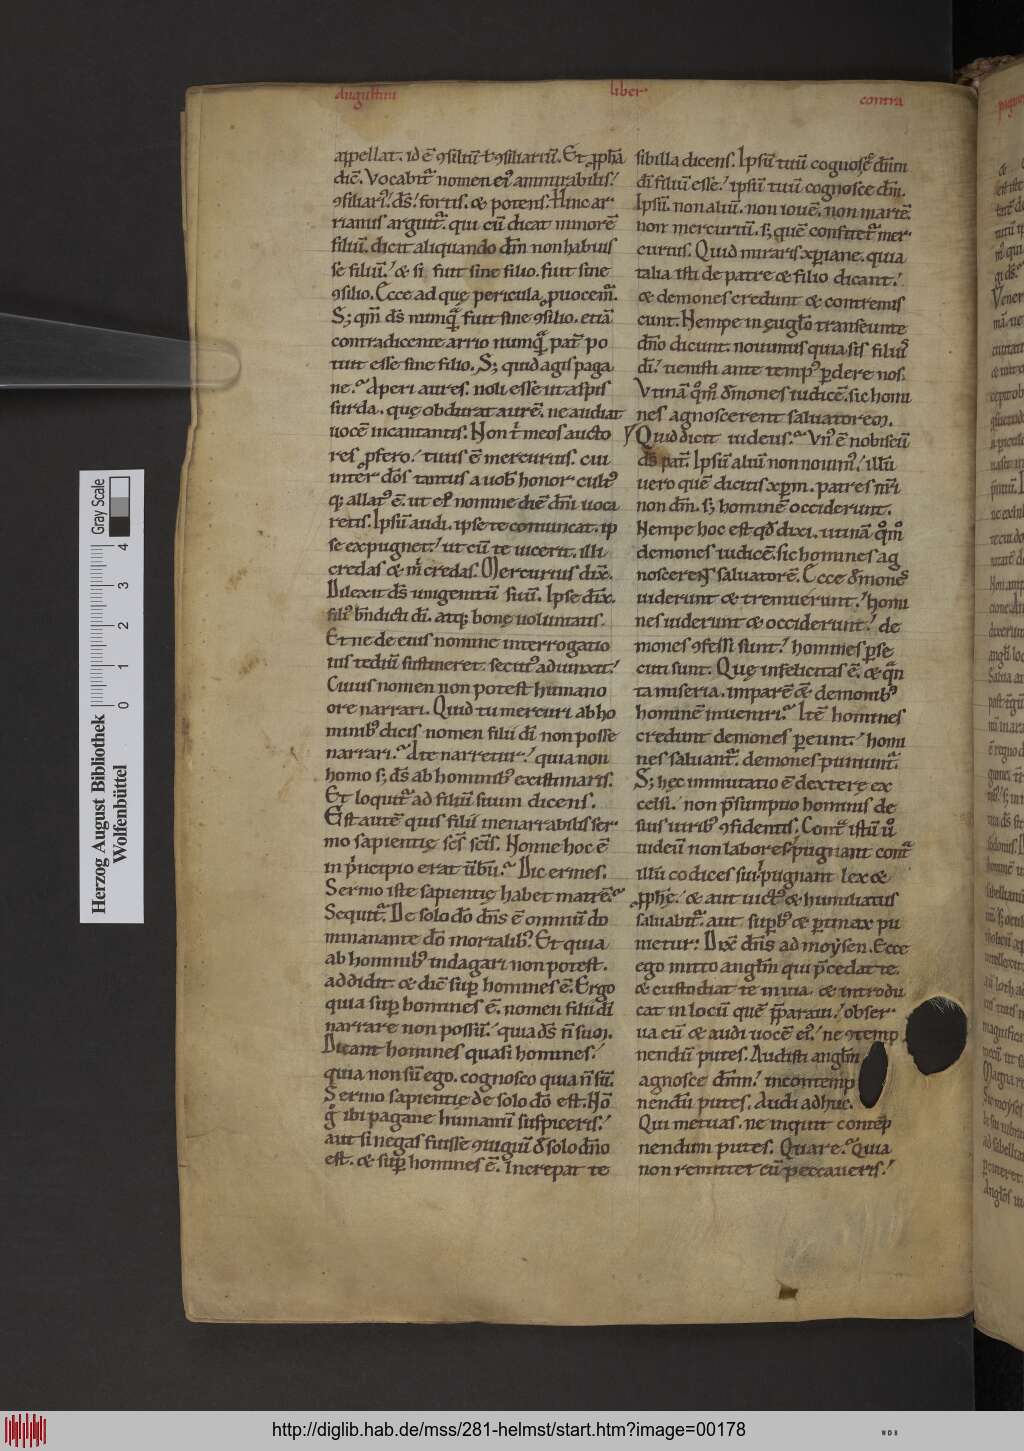 Augustini liber contra
appellat. id ē ꝯsiliū ł ꝯsiliariū. Et ꝓph̄a
dic̄. Vocabit᷑ nomen eiꝰ ammirabilis.
ꝯsiliariꝰ. ds̄. fortis. & potens. Hinc ar
rianus arguit᷑. qui cū dicat minorē
filiū. dicit aliquando dm̄ non habuis
se filiū. & si fuit sine filio. fuit sine
ꝯsilio. Ecce ad que pericula ꝓuocem᷑.
S; qm̄ ds̄ numqͣ fuit sine ꝯsilio. etiā
contradicente arrio numqͣ pat̄ po
tuit esse sine filio. S; quid agis paga
ne. Aperi aures. noli esse ut aspis
surda. que obdurat aurē. ne audiat
uocē incantantis. Non t̄ meos aucto
res ꝓfero. tuus ē mercurius. cui
inter dō̄s tantus a uob̄ honor cultꝰ
q; allatꝰ ē. ut eiꝰ nomine diē dm̄ uoca
retis. Ipsū audi. ipse te comuncat. ip
se expugnet. ut cū te uicerit. illi
credas & m̄ credas. Mercurius dix̄.
Dilexit ds̄ unigenitū suū. Ipse dix̄.
filiꝰ bn̄dicti dī. atq; bone uoluntatis.
Et ne de eius nomine interrogatio
nis tediū sustineret. secutꝰ adiunxit.
Cuius nomen non potest humano
ore narrari. Quid tu mercuri ab ho
minibꝰ dicis nomen filii dī non posse
narrari. A te narretur. quia non
homo s; ds̄ ab hominibꝰ existimaris.
Et loquit᷑ ad filiū suum dicens.
Est autē quis filii inenarrabilis ser
mo sapientie scs̄ scī̄s. Nonne hoc ē
in pͥncipio erat ūbū. Dic ermes.
Sermo iste sapientie habet matrē.
Sequit᷑. De solo dō dn̄s ē omniū do
minanante dō mortalibꝰ. Et quia
ab hominibꝰ indagari non potest.
addidit. & dic̄ suꝑ homines ē. Ergo
quia suꝑ homines ē. nomen filii dī
narrare non possū. quia ds̄ n̄ suꝫ.
Dicant homines quasi homines.
quia non sū ego. cognosco quia n̄ sū.
Sermo sapientie de solo dō est. Hō
g̊ ibi pagane humanū suspiceris.
aut si negas fuisse ꝯiugiū de solo dn̄o
est. & suꝑ homines ē. Increpat te
sibilla dicens. Ipsū tuū cognosc̄e dn̄m
dī filiū esse. ipsū tuū cognosce dm̄.
Ipsū. non aliū. non iouē. non martē.
non mercuriū. s; quē confitet᷑ mer
curius. Quid miraris xp̄iane. quia
talia isti de patre & filio dicant.
& demones credunt & contremis
cunt. Nempe in euglo transeunte
dn̄o dicunt. nouimus quia sis filiꝰ
dī. uenisti ante tempꝰ ꝑdere nos.
Vtinā qͦmͦ demones iudic̄. sic homi
nes agnoscerent saluatoreꝫ.
Quid dicit iudeus. Vnꝰ ē nobiscū
ds̄ pat̄. Ipsū aliū non nouimꝰ. illū
uero quē dicitis xp̄m. patres nr̄i
non dm̄. s; hominē occiderunt.
Nempe hoc est qd̄ dixi. utinā qͦmͦ
demones iudic̄. sic homines ag
noscerent saluatorē. Ecce demones
uiderunt & tremuerunt. homi
nes uiderunt & occiderunt. de
mones ꝯfessi sunt. homines ꝑse
cuti sunt. Que infelicitas ē. & qͣn
ta miseria. imparē & demonibꝰ
hominē inueniri. Itē homines
credunt demones ꝑeunt. homi
nes saluant᷑. demones puniunt᷑.
S; hec immutatio ē dextere ex
celsi. non p̄sumptio hominis de
suis uiribꝰ ꝯfidentis. Contͣ istū uͦ
iudeū non labores. pugnant contͣ
illū codices sui. pugnant lex &
ꝓph̄e. & aut uictꝰ & humiliatus
saluabit᷑. aut suꝑbꝰ & ꝑtinax pu
nietur. Dix̄ dn̄s ad moysen. Ecce
ego mitto anglm̄ qui p̄cedat te.
& custodiat te in uia. & introdu
cat in locū quē p̄paraui. obser
ua eū & audi uocē eiꝰ. ne ꝯtemp
nendū putes. Audisti anglm̄
agnosce dn̄m. incontemp
nendū putes. Audi adhuc.
Qui metuas. ne inquit contēp
nendum putes. Quare. Quia
non remittet cū peccaueris.
Herzog August Bibliothek
Wolfenbüttel
0 1 2 3 4
Gray Scale
http://diglib.hab.de/mss/281-helmst/start.htm?image=00178